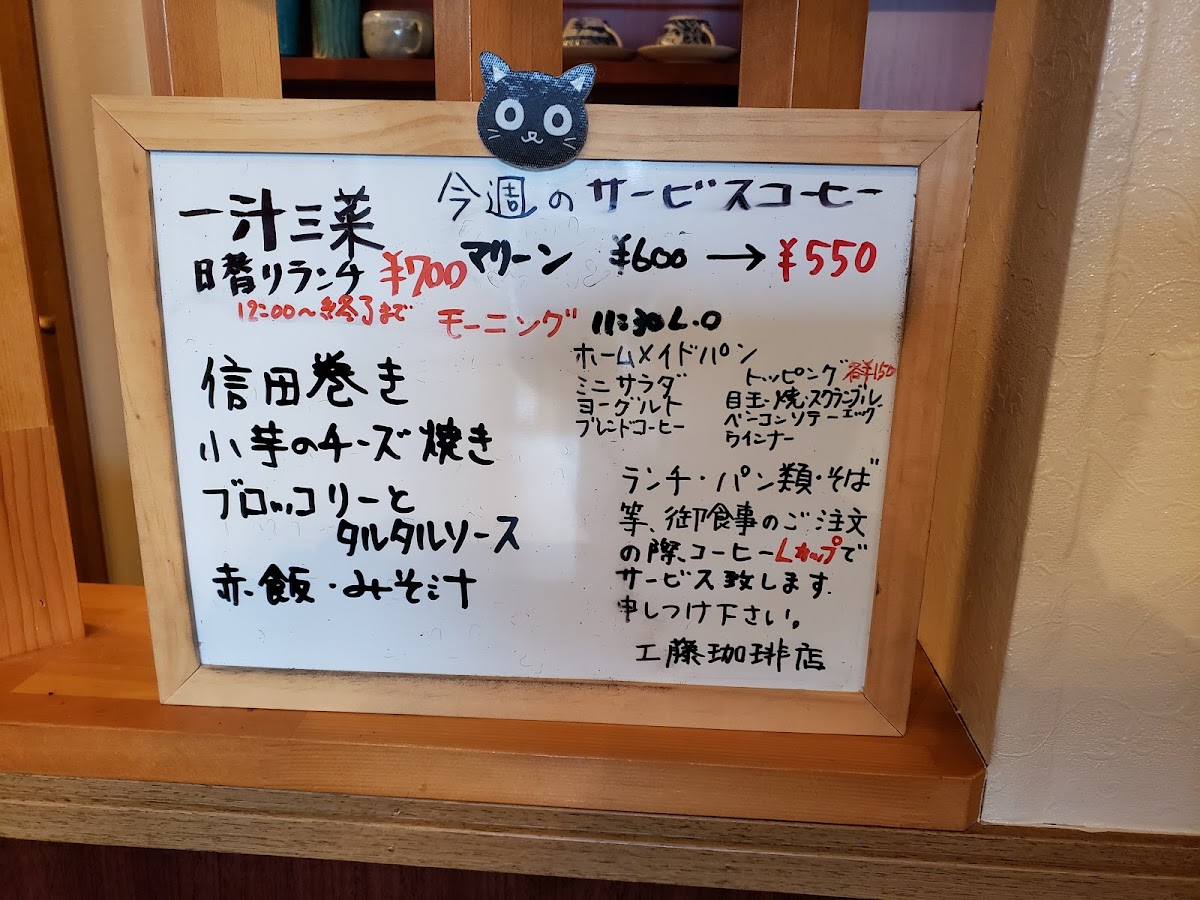 一汁三菜
日替りランチ ¥700
12:00～終了まで
信田巻き
小芋のチーズ焼き
ブロッコリーと
タルタルソース
赤飯・みそ汁
今週のサービスコーヒー
マリーン ¥600 → ¥550
モーニング 11:30 L.O
ホームメイドパン
ミニサラダ
ヨーグルト
ブレンドコーヒー
トッピング 各¥150
目玉焼・スクランブル
ベーコンソテー エッグ
ウインナー
ランチ・パン類・そば
等、御食事のご注文
の際、コーヒーLカップで
サービス致します.
申しつけ下さい。
工藤珈琲店